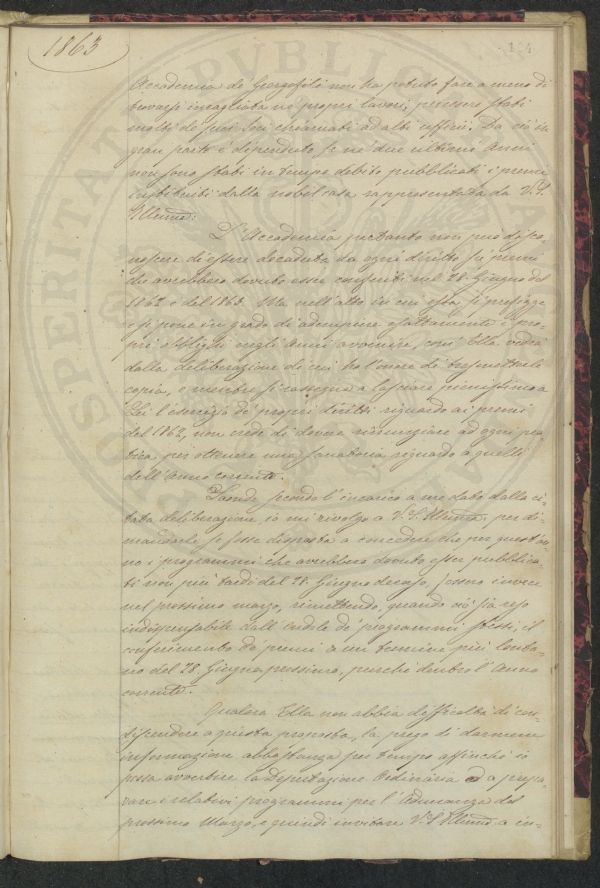 1863
Accademia de Georgofili non ha potuto fare a meno di
trovarsi incagliata ne' proprj lavori, perocchè stati
molti de' suoi Soci chiamati ad altri ufficii. Da ciò in
gran parte è dipenduto se ne' due ultimi anni
non sono stati in tempo debito pubblicati i premi
instituiti dalla nobil casa rappresentata da V.S.
Illma:
L'Accademia pertanto non può disco-
noscere di essere decaduta da ogni diritto su premi
che avrebbero dovuto esser conferiti nel 28 Giugno del
1862 e del 1863. Ma nell'atto in cui essa si prefigge
e si pone in grado di adempiere esattamente i pro-
pri obblighi negli anni avvenire, com' Ella vedrà
dalla deliberazione di cui ho l'onore di trasmetterle
copia, e mentre si rassegna a lasciare pienissimo a
Lei l'esercizio de' proprj diritti riguardo ai premi
del 1862, non crede di dovere rinunziare ad ogni pra-
tica per ottenere una sanatoria riguardo a quelli
dell'anno corrente.
Laonde secondo l'incarico a me dato dalla ci-
tata deliberazione io mi rivolgo a V.S. Illma. per di-
mandarle se fosse disposta a concedere che per quest'an-
no i programmi che avrebbero dovuto esser pubblica-
ti non più tardi del 28. Giugno decorso, fossero invece
nel prossimo marzo, rimettendo, quando ciò sia reso
indispensabile dall'indole de' programmi stessi il
conferimento de' premi a un termine più lonta-
no del 28. Giugno prossimo, purchè dentro l'Anno
corrente.
Qualora Ella non abbia difficoltà di con-
discendere a questa proposta, la prego di darmene
informazione abbastanza per tempo affinchè io
possa avvertire la Deputazione Ordinaria a prepa-
rare i relativi programmi per l'Adunanza del
prossimo Marzo, e quindi invitare V.S Illma. a in-